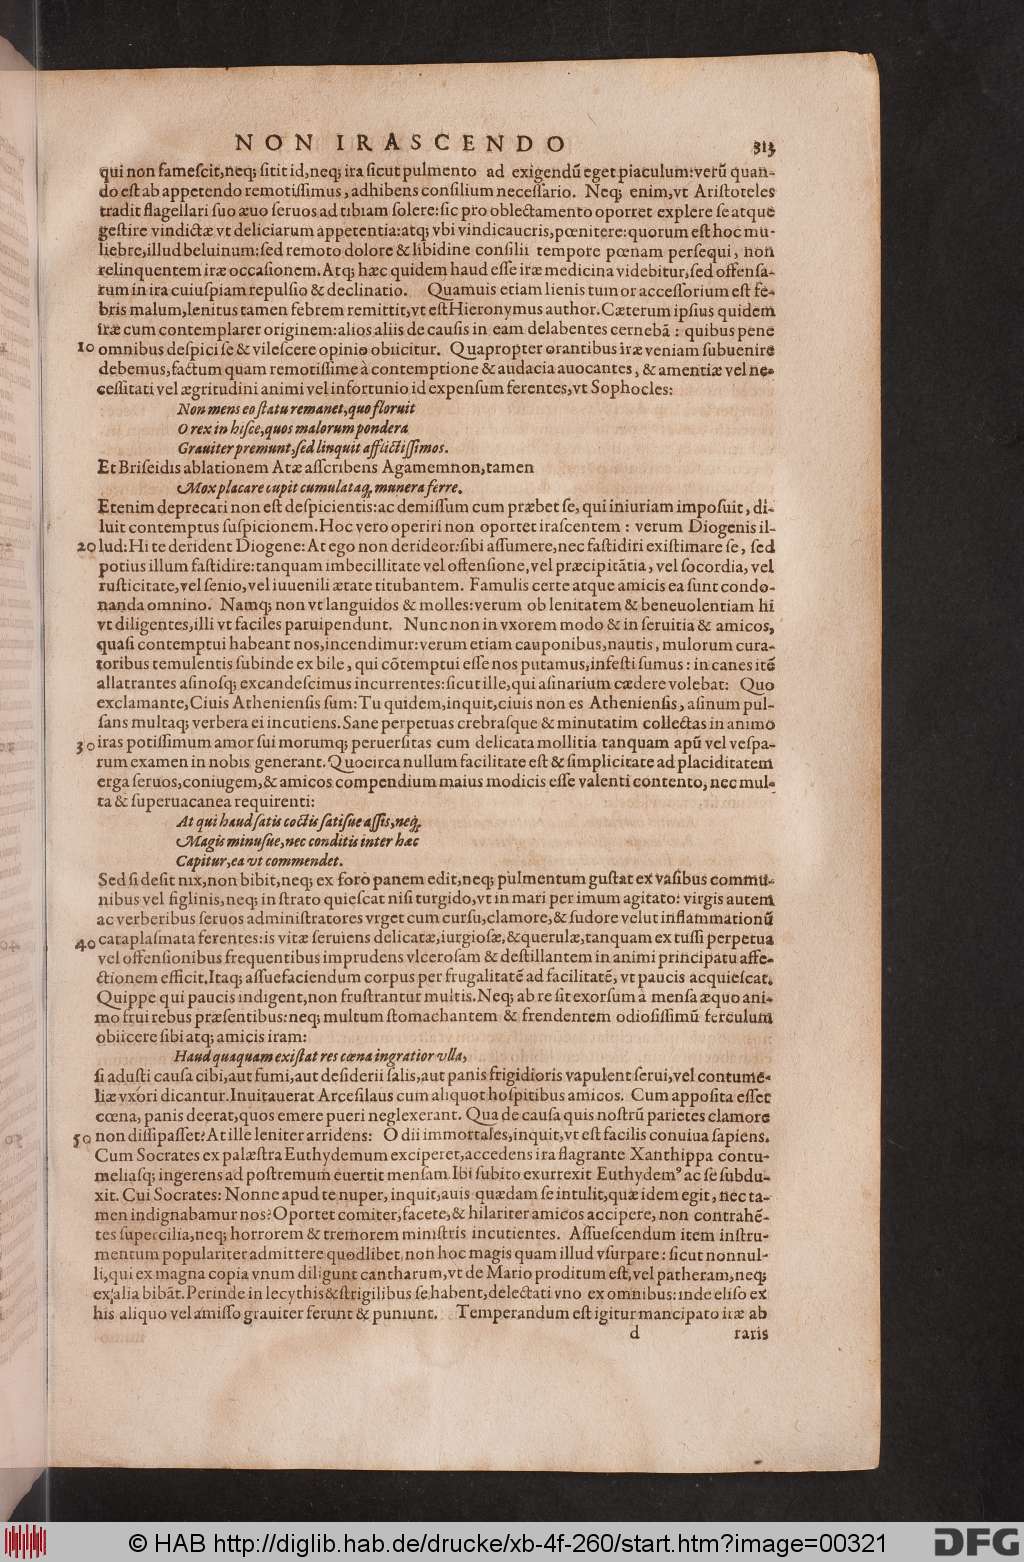 NON IRASCENDO 313
qui non famescit,neq; sitit id,neq; ira sicut pulmento ad exigendū eget piaculum:verū quan-
do est ab appetendo remotissimus, adhibens consilium necessario. Neq; enim,vt Aristoteles
tradit flagellari suo æuo seruos ad tibiam solere:sic pro oblectamento oportet explere se atque
gestire vindictæ vt deliciarum appetentia:atq; vbi vindicaucris,pœnitere:quorum est hoc mu-
liebre,illud beluinum:sed remoto dolore & libidine consilii tempore pœnam persequi, non
relinquentem iræ occasionem. Atq; hæc quidem haud esse iræ medicina videbitur,sed offensa-
rum in ira cuiuspiam repulsio & declinatio. Quamuis etiam lienis tumor accessorium est fe-
bris malum,lenitus tamen febrem remittit,vt est Hieronymus author. Cæterum ipsius quidem
iræ cum contemplarer originem:alios aliis de causis in eam delabentes cernebā: quibus pene
10 omnibus despici se & vilescere opinio obiicitur. Quapropter orantibus iræ veniam subuenire
debemus,factum quam remotissime à contemptione & audacia auocantes, & amentiæ vel ne-
cessitati vel ægritudini animi vel infortunio id expensum ferentes,vt Sophocles:
Non mens eo statu remanet,quo floruit
O rex in hisce,quos malorum pondera
Grauiter premunt,sed linquit afflictissimos.
Et Briseidis ablationem Atæ asscribens Agamemnon,tamen
Mox placare cupit cumulataq; munera ferre.
Etenim deprecari non est despicientis:ac demissum cum præbet se, qui iniuriam imposuit, di-
luit contemptus suspicionem. Hoc vero operiri non oportet irascentem: verum Diogenis il-
20 lud:Hi te derident Diogene:At ego non derideor:sibi assumere,nec fastidiri existimare se, sed
potius illum fastidire:tanquam imbecillitate vel ostensione,vel præcipitātia, vel socordia, vel
rusticitate,vel senio,vel iuuenili ætate titubantem. Famulis certe atque amicis ea sunt condo-
nanda omnino. Namq; non vt languidos & molles:verum ob lenitatem & beneuolentiam hi
vt diligentes,illi vt faciles paruipendunt. Nunc non in vxorem modo & in seruitia & amicos,
quasi contemptui habeant nos,incendimur:verum etiam cauponibus,nautis, mulorum cura-
toribus temulentis subinde ex bile, qui cōtemptui esse nos putamus,infesti sumus: in canes itē
allatrantes asinosq; excandescimus incurrentes:sicut ille,qui asinarium cædere volebat: Quo
exclamante,Ciuis Atheniensis sum:Tu quidem,inquit,ciuis non es Atheniensis, asinum pul-
sans multaq; verbera ei incutiens. Sane perpetuas crebrasque & minutatim collectas in animo
30 iras potissimum amor sui morumq; peruersitas cum delicata mollitia tanquam apū vel vespa-
rum examen in nobis generant. Quocirca nullum facilitate est & simplicitate ad placiditatem
erga seruos,coniugem,& amicos compendium maius modicis esse valenti contento, nec mul-
ta & superuacanea requirenti:
At qui haud satis coctis satisue assis,neq;
Magis minusue,nec conditis inter hæc
Capitur,ea vt commendet.
Sed si desit nix,non bibit,neq; ex foro panem edit,neq; pulmentum gustat ex vasibus commu-
nibus vel figlinis,neq; in strato quiescat nisi turgido,vt in mari per imum agitato: virgis autem
ac verberibus seruos administratores vrget cum cursu,clamore,& sudore velut inflammationū
40 cataplasmata ferentes:is vitæ seruiens delicatæ,iurgiosæ,& querulæ,tanquam ex tussi perpetua
vel offensionibus frequentibus imprudens vlcerosam & destillantem in animi principatu affe-
ctionem efficit. Itaq; assuefaciendum corpus per frugalitatē ad facilitatē, vt paucis acquiescat.
Quippe qui paucis indigent,non frustrantur multis. Neq; ab re sit exorsum à mensa æquo ani-
mo frui rebus præsentibus:neq; multum stomachantem & frendentem odiosissimū ferculum
obiicere sibi atq; amicis iram:
Haud quaquam existat res cœna ingratior vlla,
si adusti causa cibi,aut fumi,aut desiderii salis,aut panis frigidioris vapulent serui,vel contume-
liæ vxori dicantur. Inuitauerat Arcesilaus cum aliquot hospitibus amicos. Cum apposita esset
cœna, panis deerat,quos emere pueri neglexerant. Qua de causa quis nostrū parietes clamore
50 non dissipasset? At ille leniter arridens: O dii immortales,inquit,vt est facilis conuiua sapiens.
Cum Socrates ex palæstra Euthydemum exciperet,accedens ira flagrante Xanthippa contu-
meliasq; ingerens ad postremum euertit mensam. Ibi subito exurrexit Euthydemꝰ ac se subdu-
xit. Cui Socrates: Nonne apud te nuper, inquit,auis quædam se intulit,quæ idem egit, nec ta-
men indignabamur nos? Oportet comiter,facete,& hilariter amicos accipere, non contrahē-
tes supercilia,neq; horrorem & tremorem ministris incutientes. Assuescendum item instru-
mentum populariter admittere quodlibet, non hoc magis quam illud vsurpare: sicut nonnul-
li,qui ex magna copia vnum diligunt cantharum,vt de Mario proditum est,vel patheram,neq;
ex alia bibāt. Perinde in lecythis & strigilibus se habent,delectati vno ex omnibus:inde eliso ex
his aliquo vel amisso grauiter ferunt & puniunt. Temperandum est igitur mancipato iræ ab
d raris
© HAB http://diglib.hab.de/drucke/xb-4f-260/start.htm?image=00321
DFG